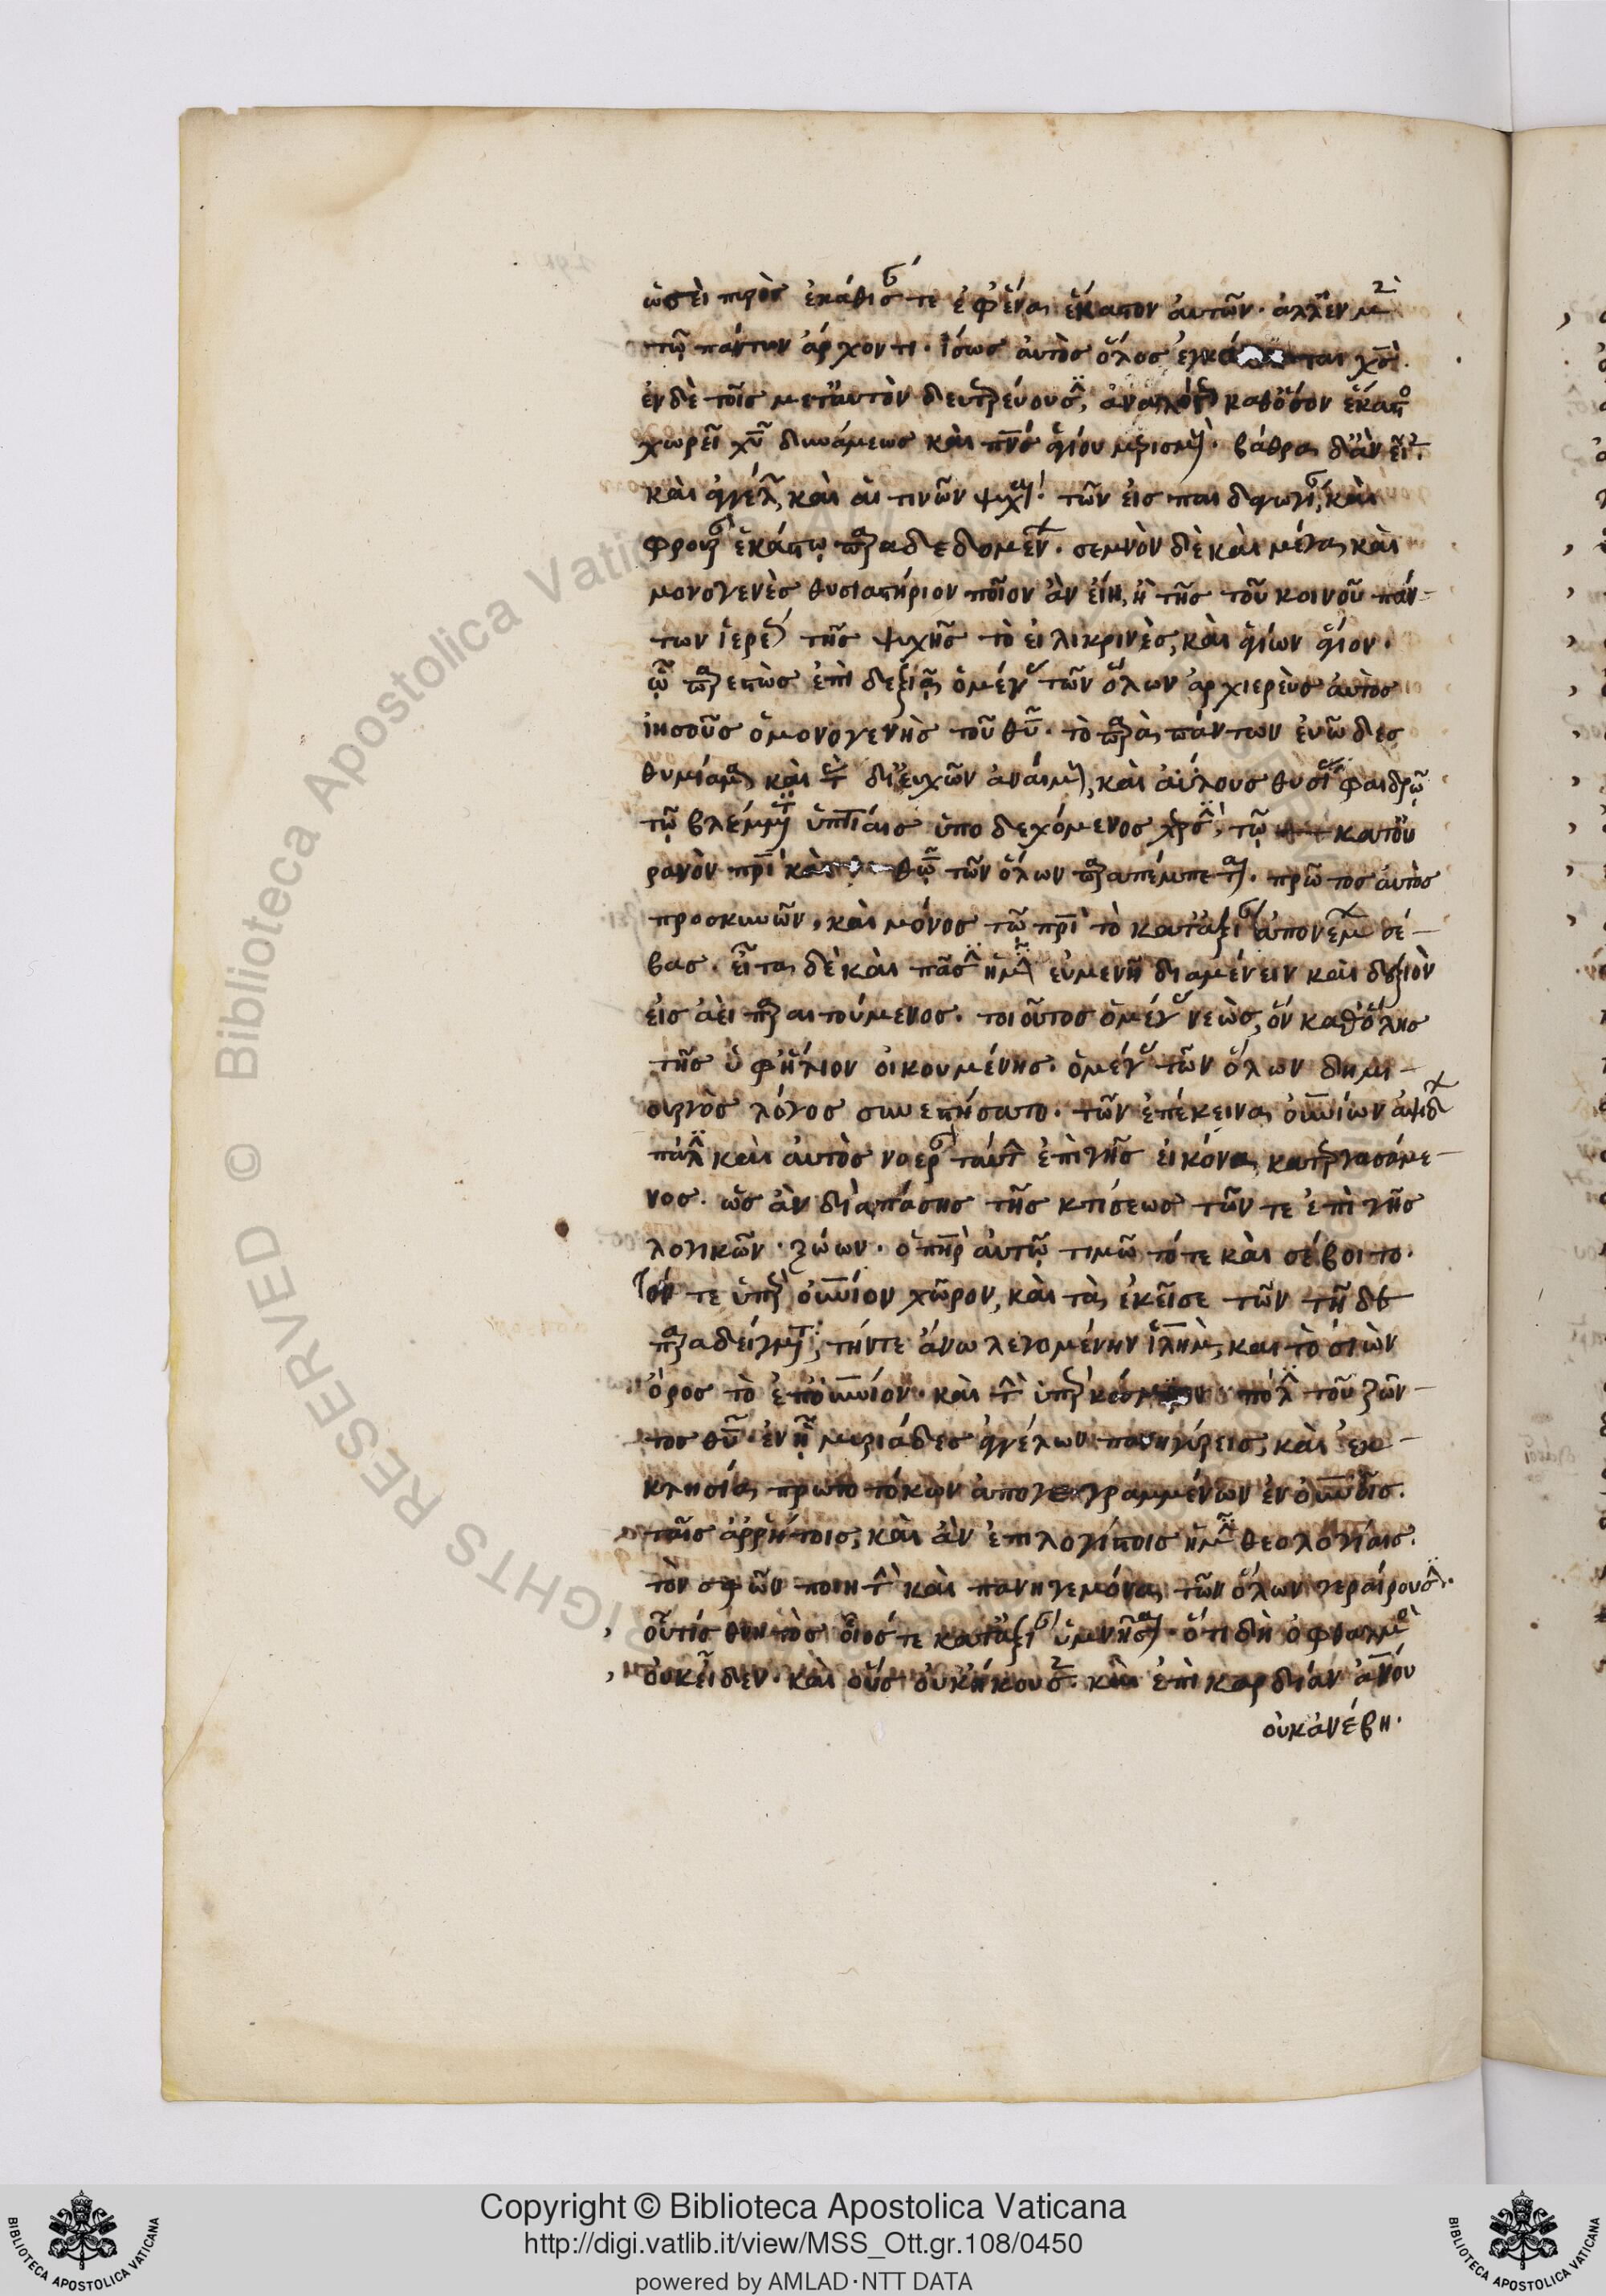 ὡσεὶ πυρὸς ἐκάθισέν τε ἐφ' ἕνα ἕκαστον αὐτῶν· ἀλλ' ἐν μὲν
τῷ πάντων ἄρχοντι· ἴσως αὐτὸς ὅλος ἐγκά ται χσ̅·
ἐν δὲ τοῖς μετ' αὐτὸν δευτερεύουσιν, ἀναλόγως καθ' ὅσον ἕκαστος
χωρεῖ χυ̅ δυνάμεως καὶ πνσ̅ ἁγίου μερισμοῖς· βάθρα δ' ἂν εἶεν
καὶ ἀγγέλων, καὶ αἱ τινῶν ψυχαὶ· τῶν εἰς παιδαγωγίαν, καὶ
φρουρὰν ἑκάστῳ παραδεδομένων· σεμνὸν δὲ καὶ μέγα καὶ
μονογενὲς θυσιαστήριον ποῖον ἂν εἴη, ἢ τῆς τοῦ κοινοῦ πάν-
των ἱερέως τῆς ψυχῆς τὸ εἰλικρινὲς, καὶ ἁγίων ἅγιον·
ᾧ παρεστὼς ἐπὶ δεξιᾷ ὁ μέγας τῶν ὅλων ἀρχιερεὺς αὐτὸς
ἰησοῦς ὁ μονογενὴς τοῦ θυ̅· τὸ παρὰ πάντων εὐῶδες
θυμίαμα καὶ τὰς δι' εὐχῶν ἀναίμους, καὶ ἀύλους θυσίας φαιδρῷ
τῷ βλέμματι ὑπτίαις ὑποδεχόμενος χερσὶν, τῷ κατ' οὐ
ρανὸν πρι̅ καὶ θω̅ τῶν ὅλων παραπέμπεται· πρῶτος αὐτὸς
προσκυνῶν, καὶ μόνος τῷ πρι̅ τὸ κατ' ἀξίαν ἀπονέμων σέ-
βας· εἶτα δὲ καὶ πᾶσιν ἡμῖν εὐμενῆ διαμένειν καὶ δεξιὸν
εἰς ἀεὶ παραιτούμενος· τοιοῦτος ὁ μέγας νεὼς, ὃν καθ' ὅλης
τῆς ὑφ' ἥλιον οἰκουμένης· ὁ μέγας τῶν ὅλων δημι-
ουργὸς λόγος συνεστήσατο· τῶν ἐπέκεινα οὐνίων ἁψίδων
πάλιν καὶ αὐτὸς νοερὰν ταύτην ἐπὶ γῆς εἰκόνα κατεργασάμε-
νος· ὡς ἂν διὰ πάσης τῆς κτίσεως τῶν τε ἐπὶ γῆς
λογικῶν ζώων· ὁ πηρ̅ αὐτῷ τιμῷτό τε καὶ σέβοιτο·
Τόν τε ὑπὲρ οὐνίον χῶρον, καὶ τὰ ἐκεῖσε τῶν τῇδε
παραδείγματα, τήν τε ἄνω λεγομένην ἰλημ̅, καὶ τὸ σιὼν
ὄρος τὸ ἐπουνίον· καὶ τὴν ὑπερκόσμιον πόλιν τοῦ ζῶν-
τος θυ̅· ἐν ᾗ μυριάδες ἀγγέλων πανηγύρεις, καὶ ἐκ-
κλησία πρωτοτόκων ἀπογεγραμμένων ἐν οὐνοῖς·
ταῖς ἀρρήτοις, καὶ ἀνεπιλογίστοις ἡμῖν θεολογίαις·
τὸν σφῶν ποιητὴν καὶ πανηγεμόνα τῶν ὅλων γεραίρουσιν·
οὔτις θνητὸς οἷός τε κατ' ἀξίαν ὑμνῆσαι· ὅτι δὴ ὀφθαλμὸς
οὐκ εἶδεν· καὶ οὖς οὐκ ἤκουσεν· καὶ ἐπὶ καρδίαν ἀνου̅
οὐκ ἀνέβη·
Copyright © Biblioteca Apostolica Vaticana
http://digi.vatlib.it/view/MSS_Ott.gr.108/0450
powered by AMLAD·NTT DATA